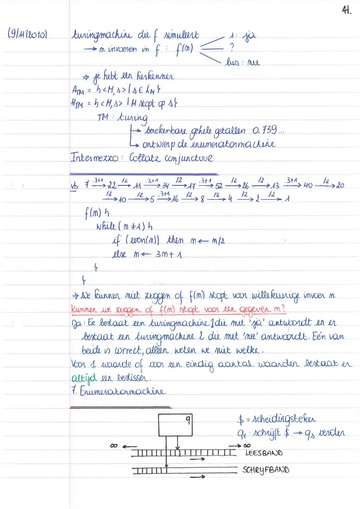 41.
(9/11/2010) turingmachine die f simuleert 1: ja
→ n invoeren in f : f(n) ?
lus: nee
⇒ je hebt een herkenner
A_TM = {<M,s> | s ∈ L_M}
H_TM = {<M,s> | M stopt op s}
TM: turing
→ berekenbare gehele getallen 0.739...
→ ontwerp de enumeratormachine
Intermezzo: Collatz conjunctuur
vb 7 →(3×+1) 22 →(/2) 11 →(3×+1) 34 →(/2) 17 →(3×+1) 52 →(/2) 26 →(/2) 13 →(3×+1) 40 →(/2) 20
→(/2) 10 →(/2) 5 →(3×+1) 16 →(/2) 8 →(/2) 4 →(/2) 2 →(/2) 1
f(n) {
while (n ≠ 1) {
if (even(n)) then n ← n/2
else n ← 3n+1
}
}
⇒ We kunnen niet zeggen of f(n) stopt voor willekeurige invoer n.
Kunnen we zeggen of f(n) stopt voor een gegeven n?
Ja: Er bestaat een turingmachine 1 die met 'ja' antwoordt en er
bestaat een turingmachine 2 die met 'nee' antwoordt. Eén van
beide is correct, alleen weten we niet welke.
Voor 1 waarde of voor een eindig aantal waarden bestaat er
altijd een beslisser.
7. Enumeratormachine
q
$ = scheidingsteken
q_e schrijft $ → q_s verder
∞ ∞
LEESBAND
SCHRIJFBAND